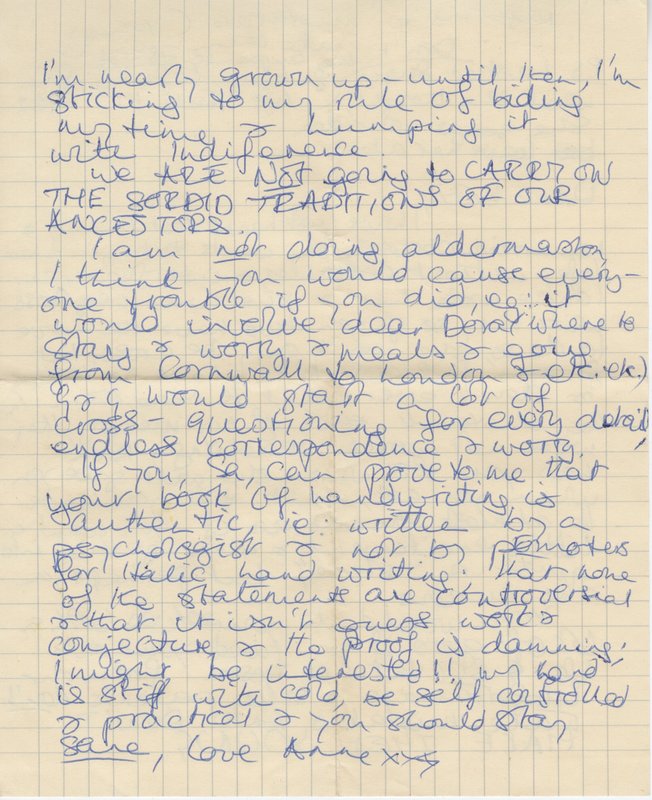 I'm nearly grown up – until then, I'm
sticking to my rule of biding
my time & humping it
with Indiference.
We ARE NOT going to CARRY ON
THE SORDID TRADITIONS OF OUR
ANCESTORS.
I am not doing aldermaston,
I think you would cause every-
one trouble if you did, eg: it
would involve dear Dora (where to
stay & worry & meals & going
from Cornwall to London & etc. etc.)
G & G would start a lot of
cross-questioning for every detail,
endless correspondence & worry.
If you, Sa, can prove to me that
your book of handwriting is
authentic, ie: written by a
psychologist & not by promoters
for Italic hand writing; that none
of the statements are controversial
& that it isn't guess work &
conjecture & the proof is damning.
I might be interested!! my hand
is stiff with cold, be self controlled
& practical & you should stay
sane, love Anne xxx